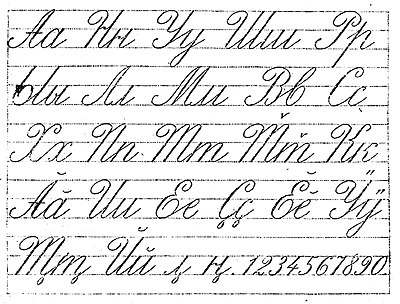 Аа Нн Уу Шш Рр
Ыы Лл Мм Вв Сс
Хх Пп Тт Т̌т̌ Кк
Ӑӑ Ии Ее Ҫҫ Ӗӗ Ӳӳ
Т̧т̧ Йй л̡ н̡ 1234567890